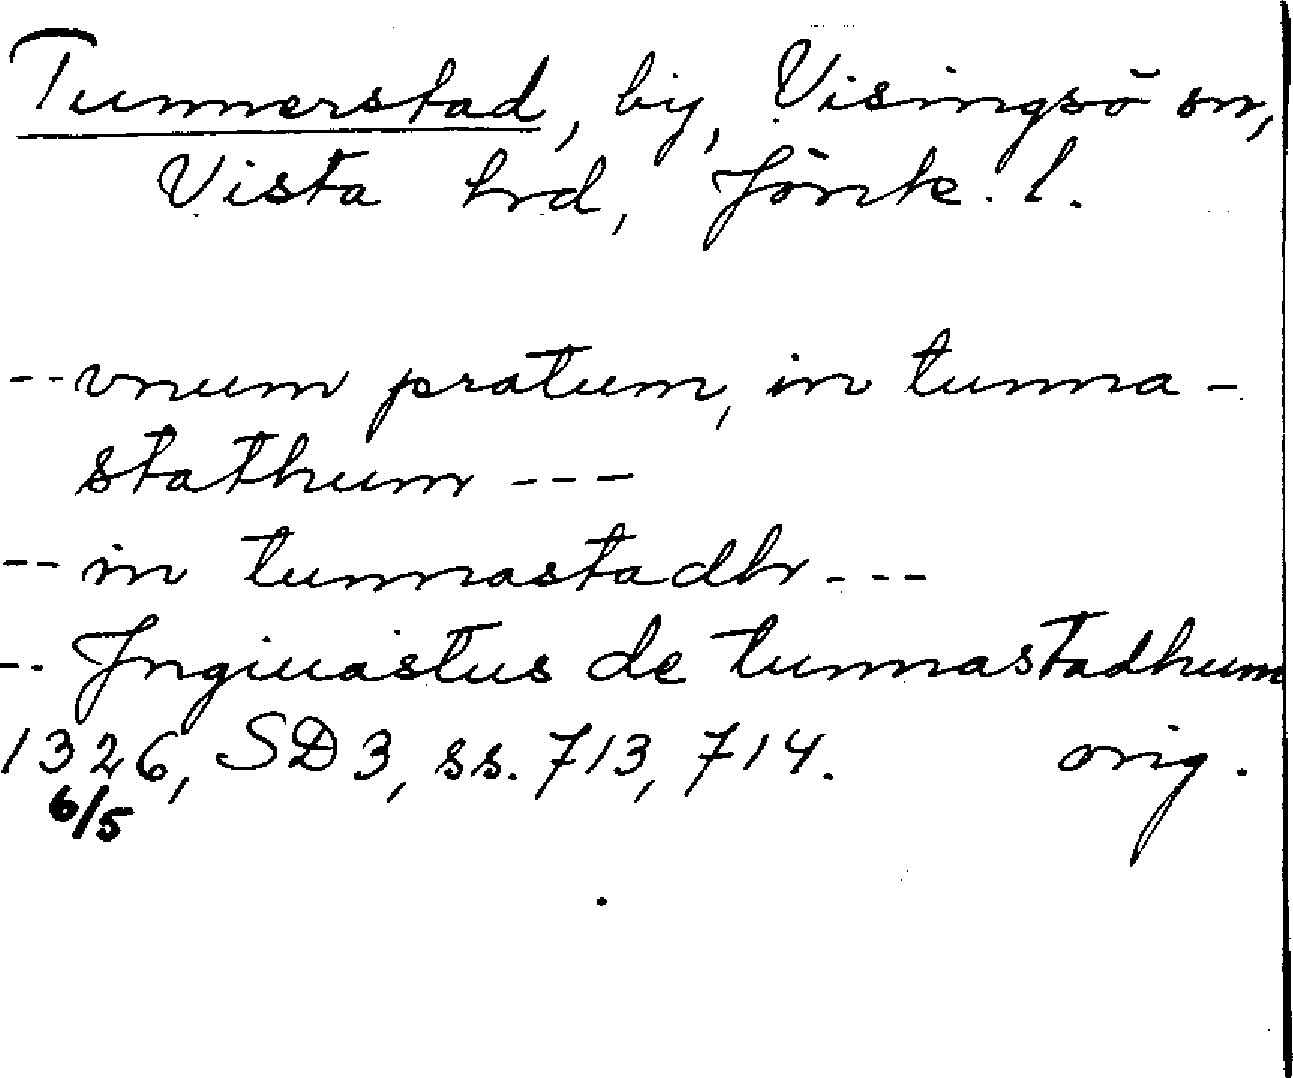 Tunnerstad, by, Visingsö sn,
Vista hrd, Jönk. l.
-- vnum pratum, in tunna-
stathum ---
-- in tunnastadhr ---
-- Jngiuastus de tunnastadhum
1326, SD 3, ss. 713, 714. orig.
6/5